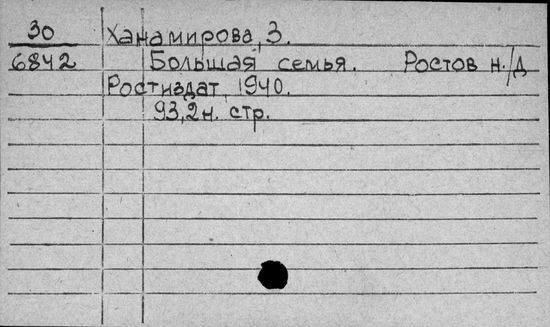 30 Ханамирова, З.
6842 Большая семья. Ростов н./Д
Ростиздат, 1940.
93,2н. стр.